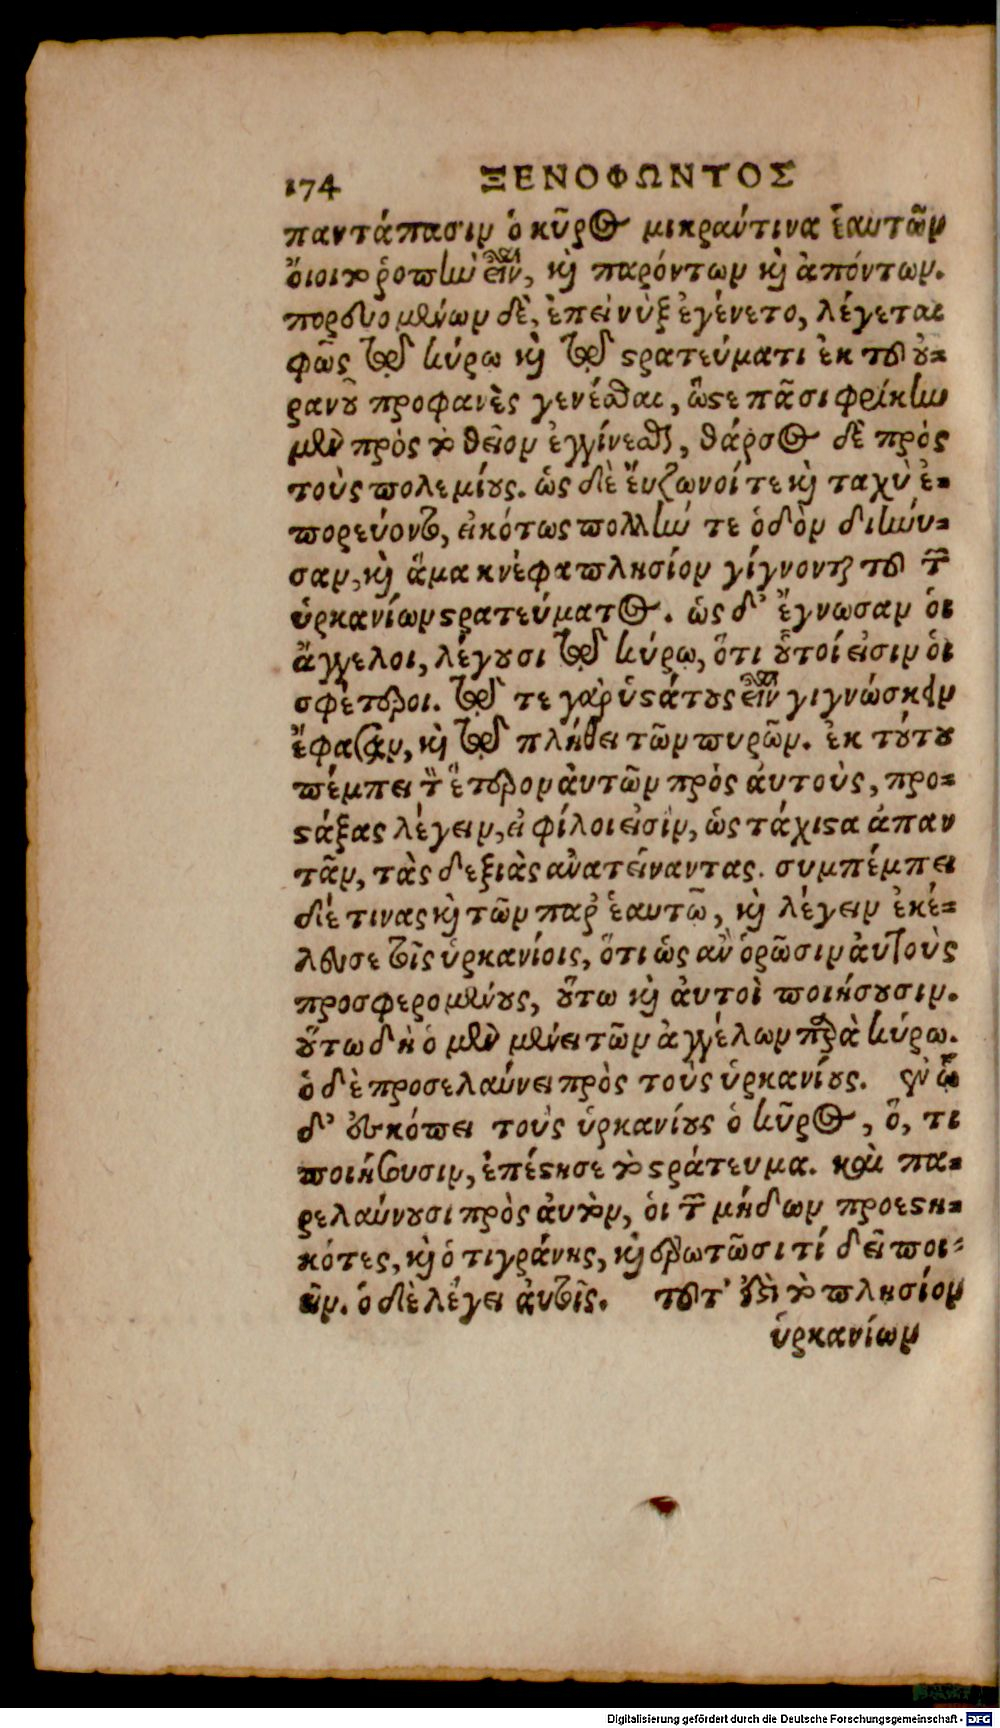 174 ΞΕΝΟΦΩΝΤΟΣ
παντάπασιν ὁ κῦρος μικράν τινα ἑαυτῶν
ὄιοιτο ῥοπὴν εἶναι, καὶ παρόντων καὶ ἀπόντων.
πορευομένων δὲ, ἐπεὶ νὺξ ἐγένετο, λέγεται
φῶς τῷ κύρῳ καὶ τῷ στρατεύματι ἐκ τοῦ οὐ-
ρανοῦ προφανὲς γενέσθαι, ὥστε πᾶσι φρίκην
μὲν πρὸς τὸ θεῖον ἐγγίνεσθαι, θάρσος δὲ πρὸς
τοὺς πολεμίους. ὡς δὲ ἔυζωνοί τε καὶ ταχὺ ἐ-
πορεύοντο, εἰκότως πολλήν τε ὁδὸν διήνυ-
σαν, καὶ ἅμα κνέφα πλησίον γίγνονται τοῦ τῶν
ὑρκανίων στρατεύματος. ὡς δ' ἔγνωσαν ὁι
ἄγγελοι, λέγουσι τῷ κύρῳ, ὅτι οὗτοί εἰσιν ὁι
σφέτεροι. τῷ τε γὰρ ὑστάτους εἶναι γιγνώσκειν
ἔφασαν, καὶ τῷ πλήθει τῶν πυρῶν. ἐκ τούτου
πέμπει τὸν ἕτερον ἀυτῶν πρὸς ἀυτοὺς, προ-
στάξας λέγειν, εἰ φίλοι εἰσὶν, ὡς τάχιστα ἀπαν
τᾶν, τὰς δεξιὰς ἀνατείναντας. συμπέμπει
δέ τινας καὶ τῶν παρ' ἑαυτῶ, καὶ λέγειν ἐκέ-
λευσε τοῖς ὑρκανίοις, ὅτι ὡς ἂν ὁρῶσιν ἀυτοὺς
προσφερομένους, οὕτω καὶ ἀυτοὶ ποιήσουσιν.
οὕτω δὴ ὁ μὲν μένει τῶν ἀγγέλων παρὰ κύρῳ.
ὁ δὲ προσελαύνει πρὸς τοὺς ὑρκανίους. ἐν ᾧ
δ' ἐσκόπει τοὺς ὑρκανίους ὁ κῦρος, ὅ, τι
ποιήσουσιν, ἐπέστησε τὸ στράτευμα. καὶ πα-
ρελαύνουσι πρὸς ἀυτὸν, ὁι τῶν μήδων προεστη-
κότες, καὶ ὁ τιγράνης, καὶ ἐρωτῶσι τί δεῖ ποι-
εῖν. ὁ δὲ λέγει ἀυτοῖς. τοῦτ' ἔστι τὸ πλησίον
ὑρκανίων
Digitalisierung gefördert durch die Deutsche Forschungsgemeinschaft - DFG